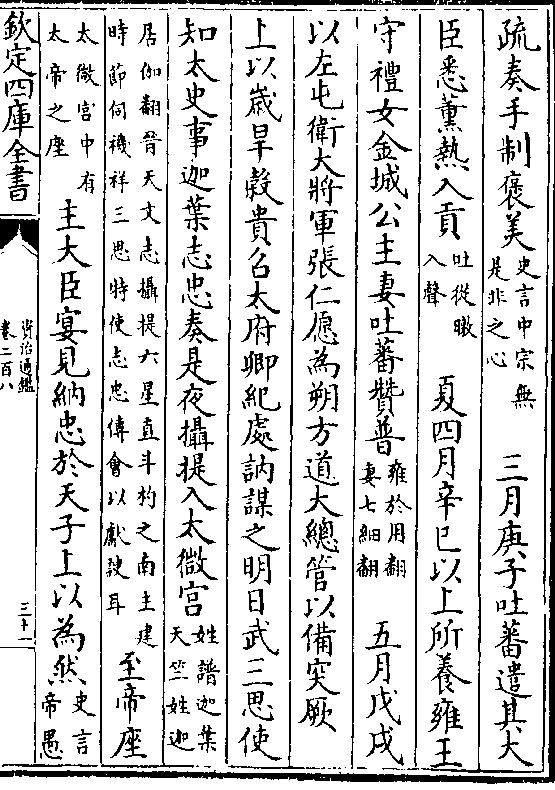 疏奏手制褒美史言中宗無是非之心三月庚子吐蕃遣其大
臣悉薰熱入貢吐從暾入聲夏四月辛巳以上所養雍王
守禮女金城公主妻吐蕃贊普雍於用翻妻七細翻五月戊戌
以左屯衛大將軍張仁愿為朔方道大總管以備突厥
上以歲旱穀貴召太府卿紀處訥謀之明日武三思使
知太史事迦葉志忠奏是夜攝提入太微宮姓譜迦葉天竺姓迦
居伽翻晉天文志攝提六星直斗杓之南主建時節伺禨祥三思特使志忠傅會以獻諛耳至帝座
太微宮中有太帝之座主大臣宴見納忠於天子上以為然史言帝愚
欽定四庫全書
資治通鑑
卷二百八
三十一